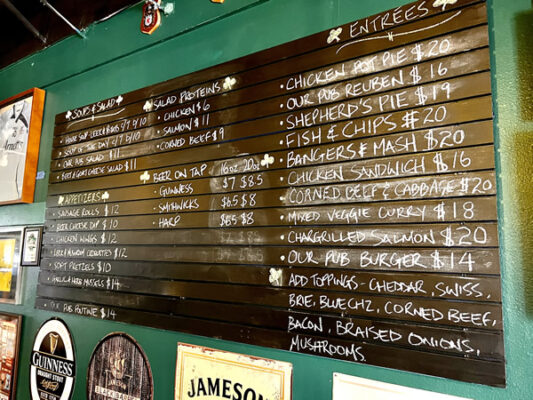 SOUPS & SALAD
SOUP OF THE DAY 5/7 8/10
OUR PUB SALAD $11
BEET & GOAT CHEESE SALAD $11
APPETIZERS
SAUSAGE ROLLS $12
BEER CHEESE DIP $10
CHICKEN WINGS $12
SOFT PRETZELS $10
MUSSELS $14
PUB POUTINE $14
SALAD PROTEINS
CHICKEN $6
SALMON $11
CORNED BEEF $9
BEER ON TAP 16oz. 20oz.
GUINNESS $7 $8.5
SMITHWICKS $6.5 $8
HARP $6.5 $8
ENTRÉES
CHICKEN POT PIE $20
OUR PUB REUBEN $16
SHEPHERD'S PIE $19
FISH & CHIPS $20
BANGERS & MASH $20
CHICKEN SANDWICH $16
CORNED BEEF & CABBAGE $20
MIXED VEGGIE CURRY $18
CHARGRILLED SALMON $20
OUR PUB BURGER $14
ADD TOPPINGS - CHEDDAR, SWISS,
BRIE, BLUE CHZ, CORNED BEEF,
BACON, BRAISED ONIONS,
MUSHROOMS.
GUINNESS
DRAUGHT STOUT
JAMESON